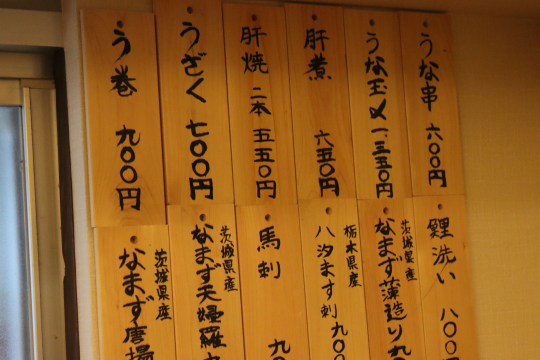 うな串 六〇〇円
うな玉〆 一、三五〇円
肝煮 六五〇円
肝焼 二本 五五〇円
うざく 七〇〇円
う巻 九〇〇円
鯉洗い 八〇〇
茨城県産
なまず薄造り 九
栃木県産
八汐ます刺 九〇〇
馬刺 九〇
茨城県産
なまず天婦羅 九
茨城県産
なまず唐揚